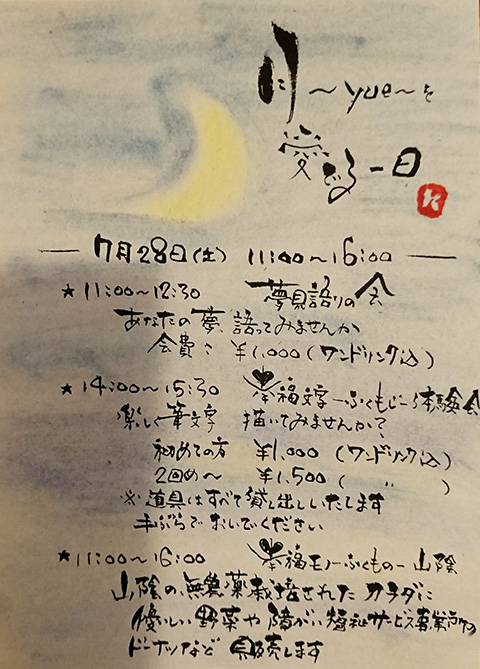 月 ～yue～を
愛でる一日
7月28日(土) 11:00～16:00
★ 11:00～12:30 夢見語りの会
あなたの夢、語ってみませんか
会費: ¥1,000 (ワンドリンク込)
★ 14:00～15:30 幸福文字ーふくもじー体験会
楽しく筆文字 描いてみませんか?
初めての方 ¥1,000 (ワンドリンク込)
2回め～ ¥1,500 ( 〃 )
※ 道具はすべて貸し出しいたします
手ぶらでおいでください
★ 11:00～16:00 幸福モノーふくものー山陰
山陰の、無農薬栽培された カラダに
優しい野菜や障がい福祉サービス事業所の
ドーナツなど 販売します